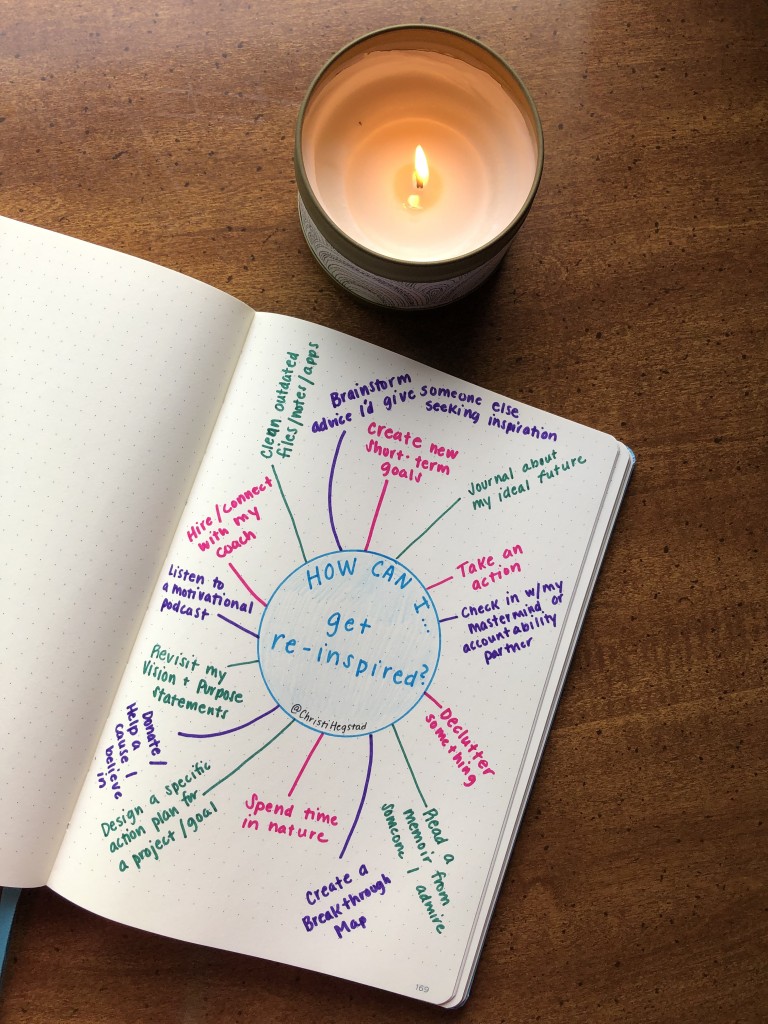 HOW CAN I...
get
re-inspired?
@ChristiHegstad
Brainstorm
advice I'd give someone else
seeking inspiration
Create new
short-term
goals
Journal about
my ideal future
Take an
action
Check in w/my
mastermind or
accountability
partner
Declutter
something
Read a
memoir from
someone I admire
Create a
Breakthrough
Map
Spend time
in nature
Design a specific
action plan for
a project/goal
Donate/
Help a
cause I
believe
in
Revisit my
Vision + Purpose
statements
Listen to
a motivational
podcast
Hire/connect
with my
coach
Clean outdated
files/notes/apps
169